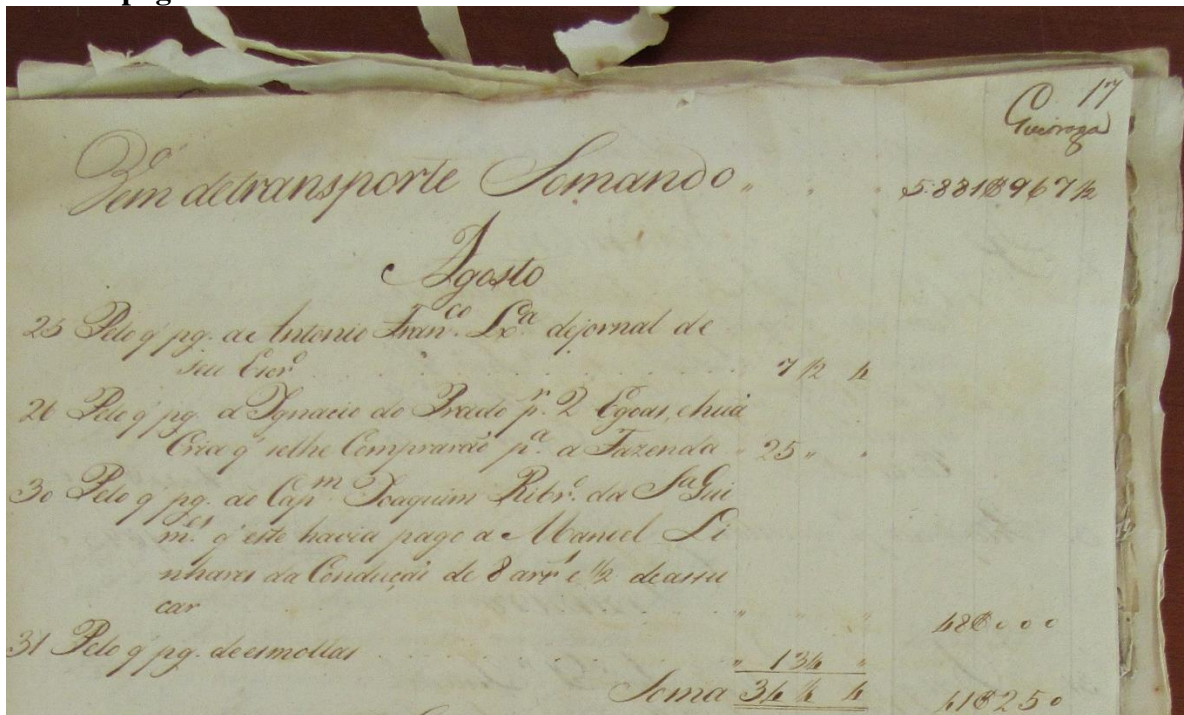 17
Guiroga
Vem detransporte Somando " " " 5.881$967½
Agosto
25 Pelo q' pg. ae Antonio Fran.co Lx.a dejornal de
seu Escr.o 7 ½ 4
26 Pelo q' pg. a Ignacio do Prado p.r 2 Egoas, ehuã
Cria q' selhe Comprarão p.a a Fazenda " 25 " "
30 Pelo q' pg. ao Cap.m Joaquim Ribr.o da S.a Gui
m.es q' este havia pago a Manoel Li
nhares da Condução de 8 arr.s e ½ deassu
car " " "
31 Pelo q' pg. deesmollas " 1 3/4 "
Soma 34 ¼ 4 41$250